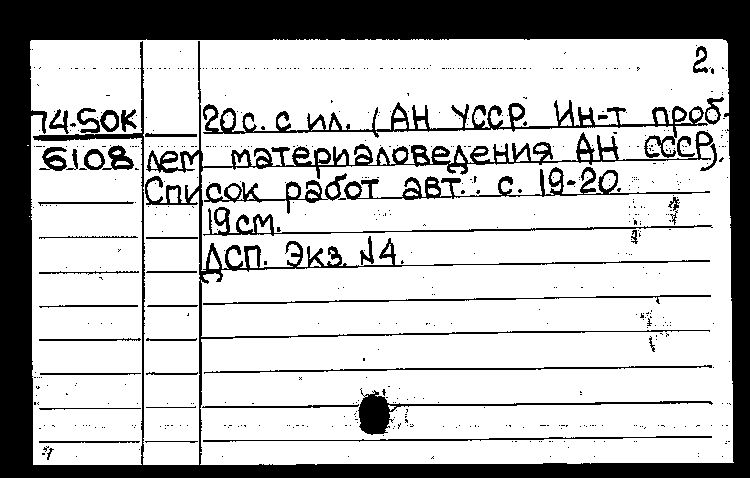 2.
74-50К 20с. с ил. (АН УССР. Ин-т проб-
6108 лем материаловедения АН СССР).
Список работ авт.: с. 19-20.
19см.
ДСП. Экз. №4.